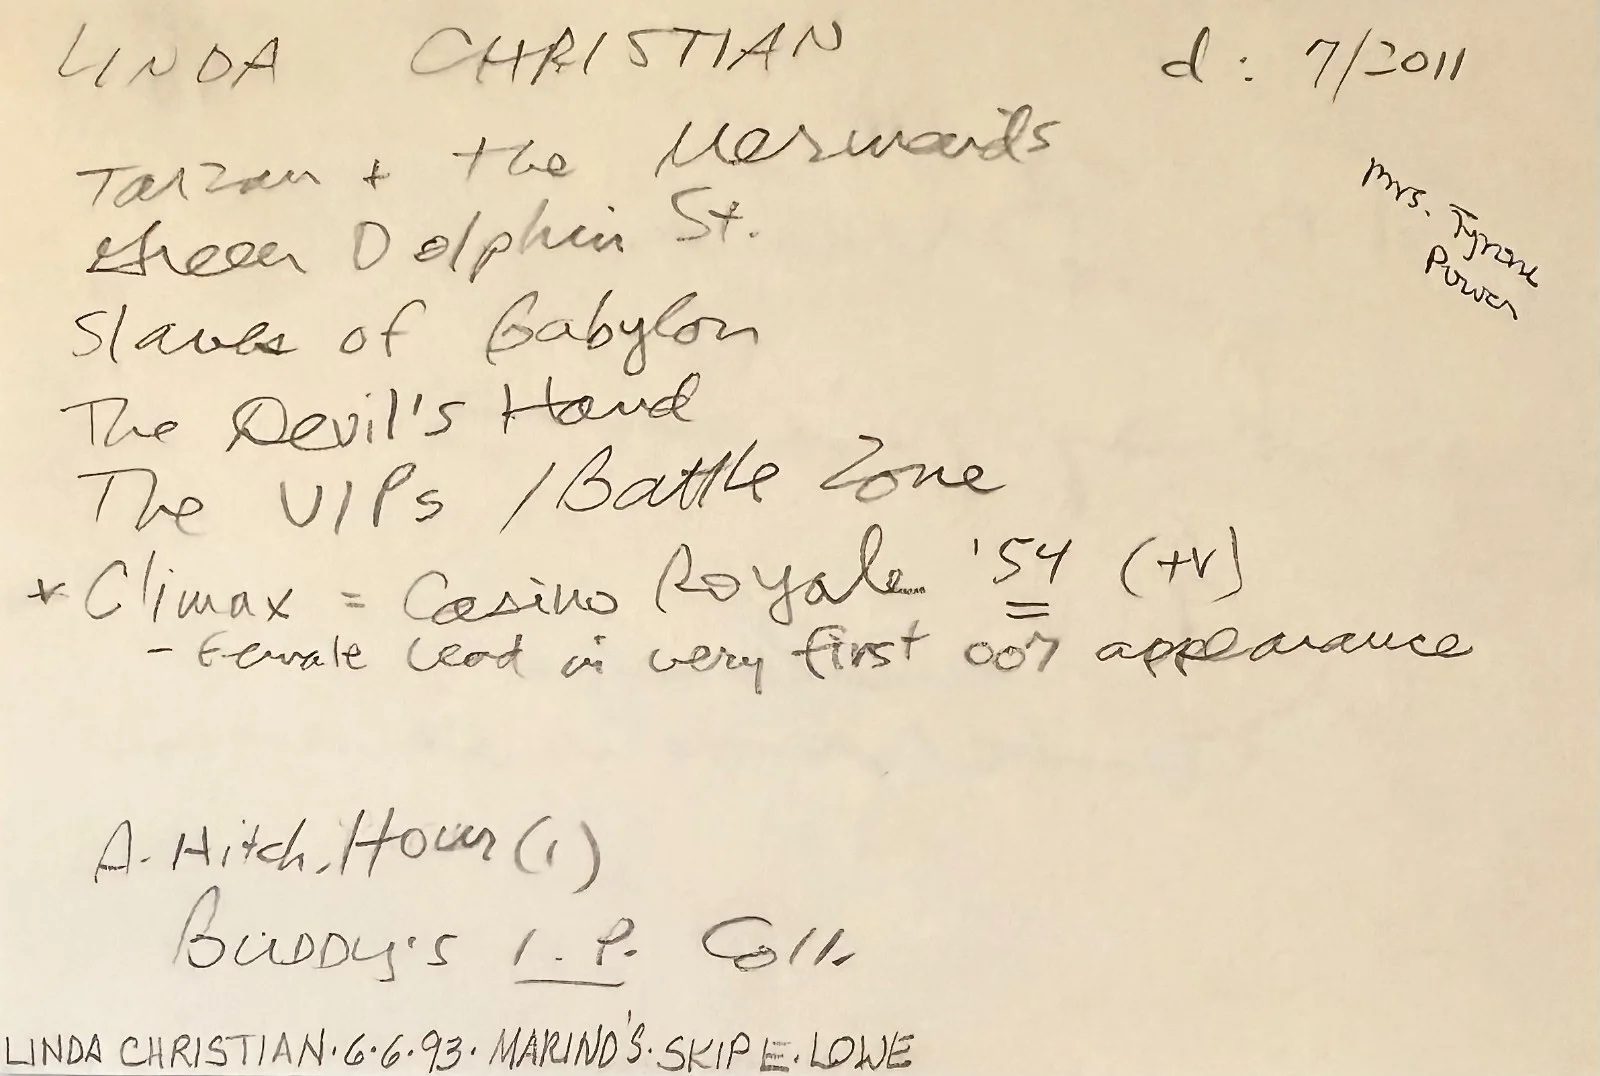 LINDA CHRISTIAN d: 7/2011
Tarzan + the Mermaids
Mrs. Tyrone
Power
Green Dolphin St.
Slaves of Babylon
The Devil's Hand
The VIPs / Battle Zone
* Climax = Casino Royale '54 (TV)
- Female lead in very first 007 appearance
A. Hitch. Hour (1)
BUDDY'S I.P. Coll.
LINDA CHRISTIAN·6·6·93·MARINO'S·SKIP E. LOWE